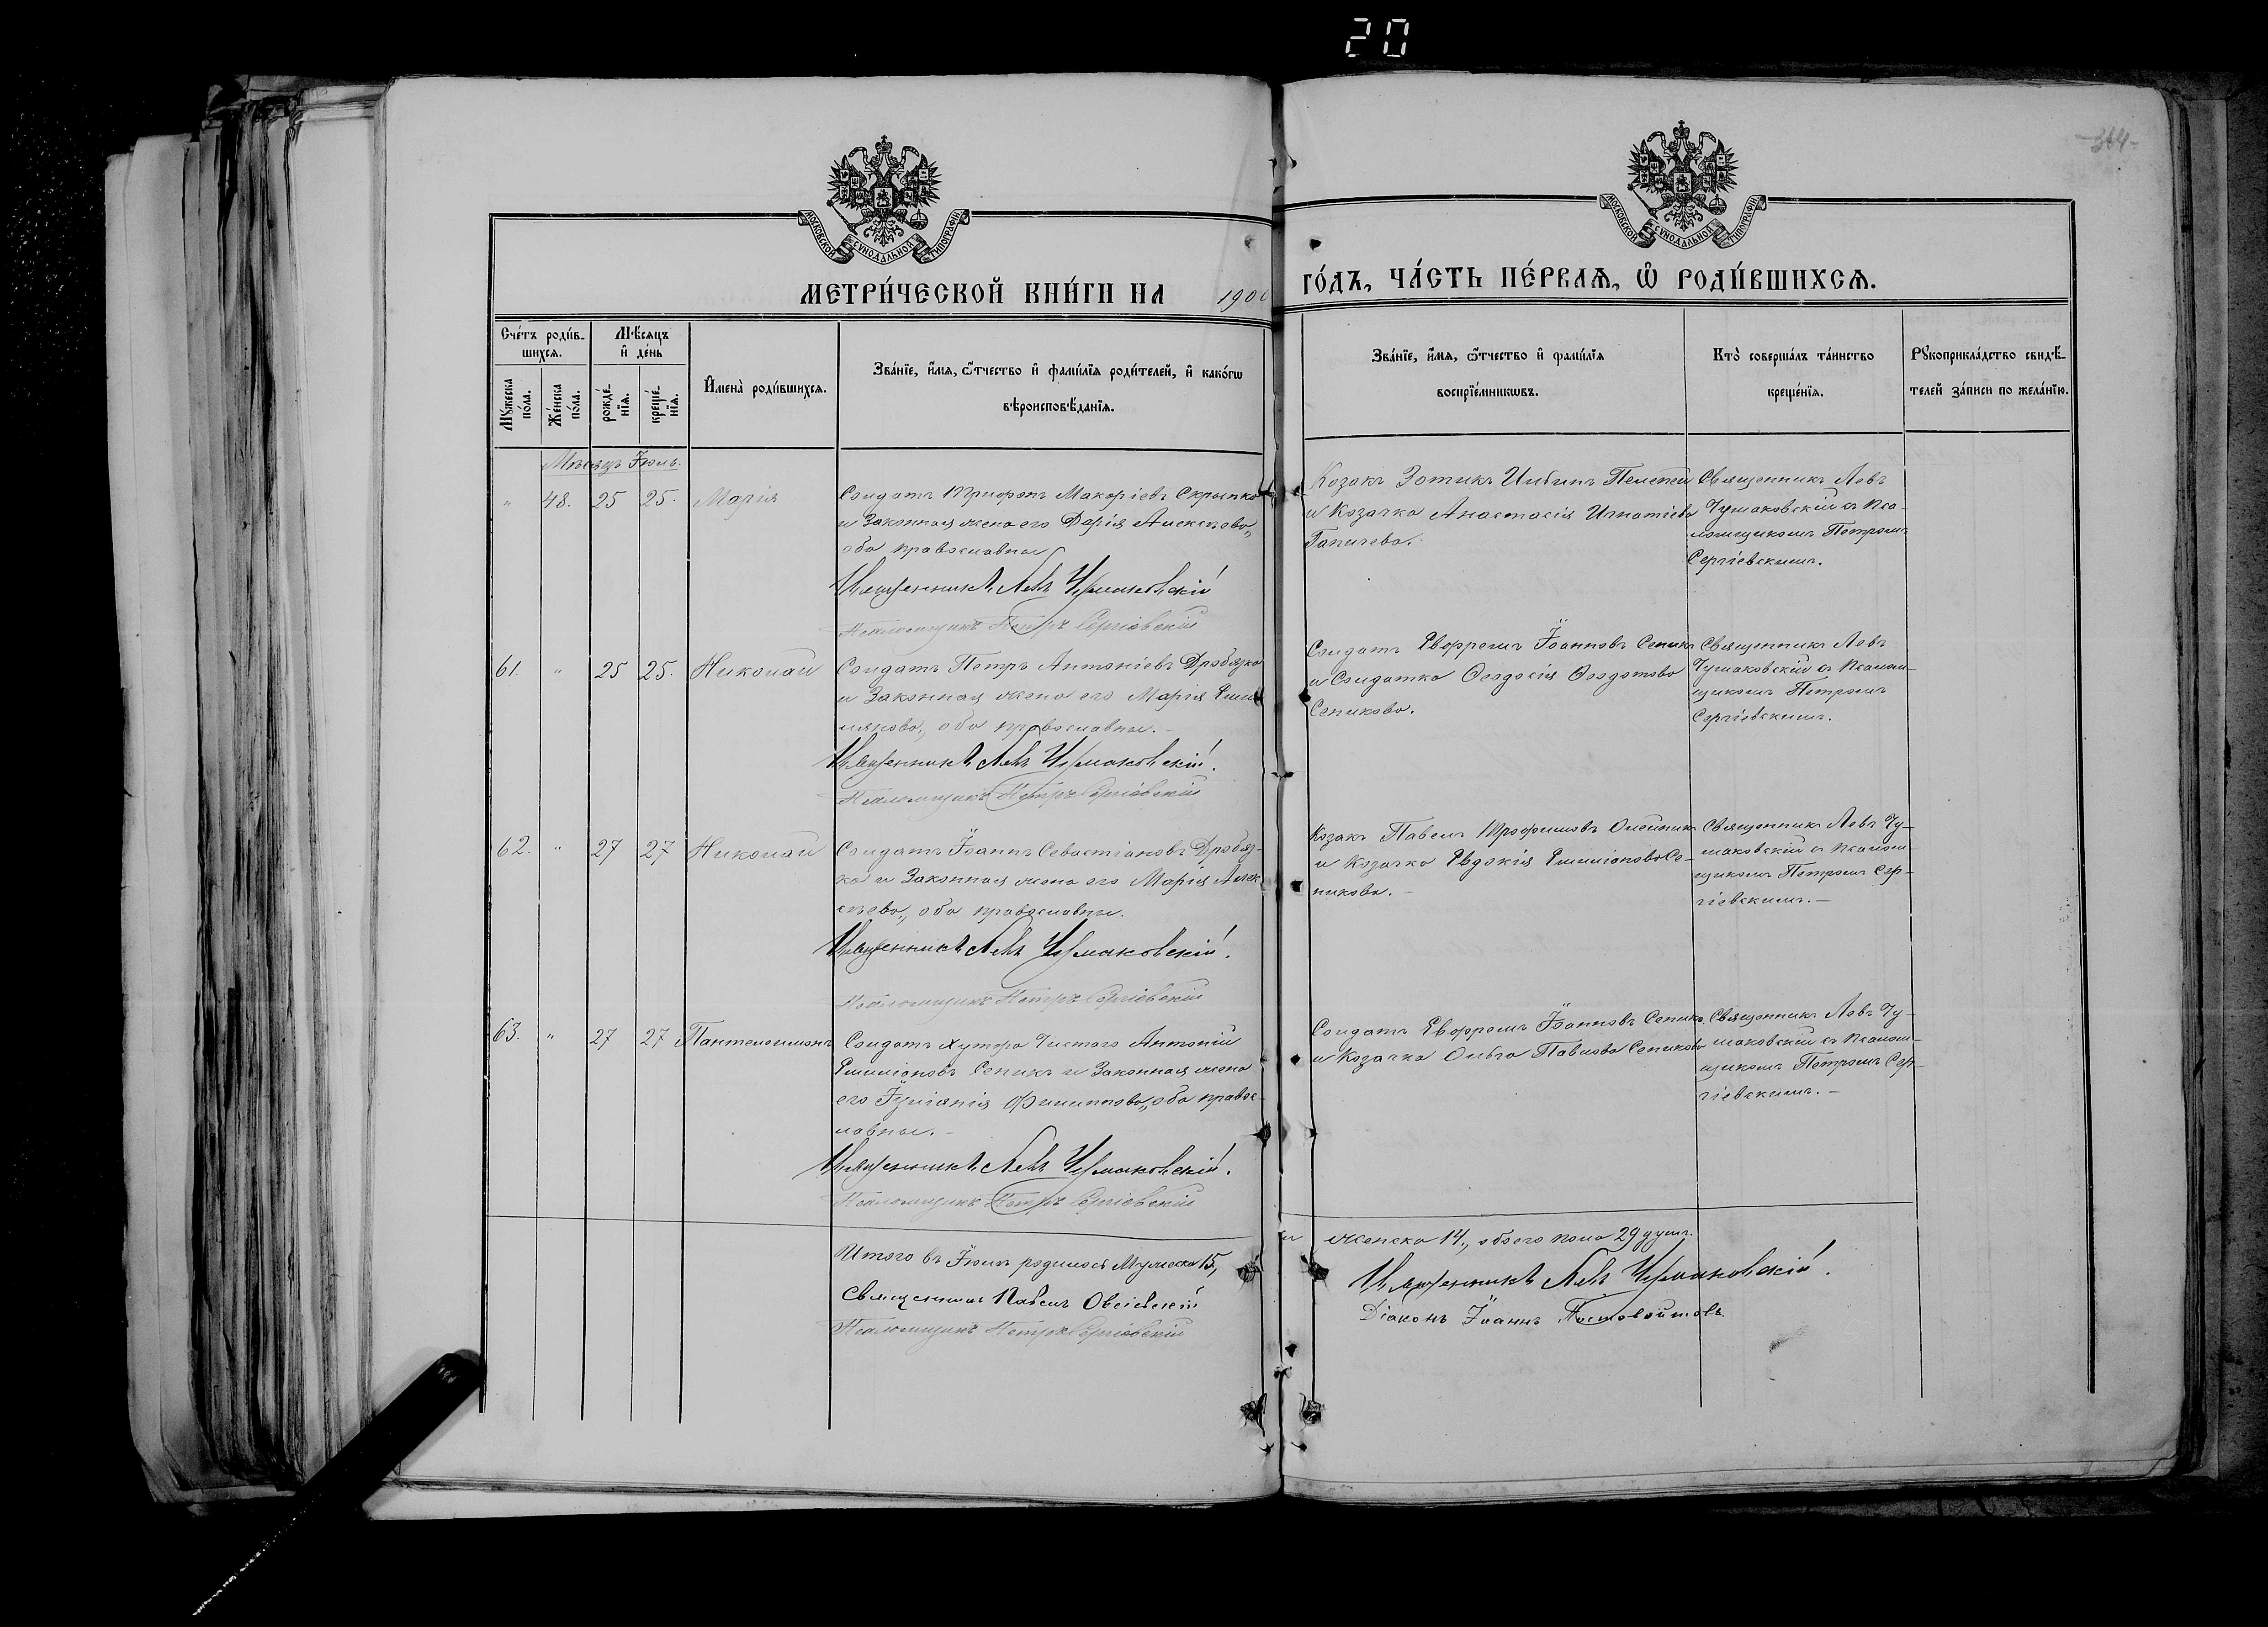 20
364
МОСКОВСКОЙ СѴНОДАЛЬНОЙ ТИПОГРАФІИ
МОСКОВСКОЙ СѴНОДАЛЬНОЙ ТИПОГРАФІИ
МЕТРИ́ЧЕСКОЙ КНИ́ГИ НА 1900 ГО́ДЪ, ЧА́СТЬ ПЕ́РВАѦ, Ѡ҆ РОДИ́ВШИХСѦ.
Сче́тъ роди́в-
шихсѧ.
Мꙋжеска
по́ла.
Же́нска
по́ла.
Мѣ́сѧцъ
и҆ де́нь
рожде́-
нїѧ.
креще́-
нїѧ.
И҆мена̀ роди́вшихсѧ.
Зва́нїе, и҆́мѧ, ѻ҆́тчество и҆ фами́лїѧ роди́телей, и҆ како́гѡ
вѣроисповѣ́данїѧ.
Зва́нїе, и҆́мѧ, ѻ҆́тчество и҆ фами́лїѧ
воспрїе́мникѡвъ.
Кто̀ соверша́лъ та́инство
креще́нїѧ.
Рꙋкоприкла́дство свидѣ́-
телей за́писи по жела́нїю.
Мѣсяцъ Іюль.
" 48. 25 25. Марія
Солдатъ Трифонъ Макаріевъ Скрыпка
и Законная жена его Дарія Алексѣева,
оба православны
Священникъ Левъ Чумаковскій
Псаломщикъ Петръ Сергіевскій
Козакъ Зотикъ
и Козачка Анастасія Игнатіева
Священникъ Левъ
Чумаковскій съ Пса-
ломщикомъ Петромъ
Сергіевскимъ.
61. " 25 25. Николай
Солдатъ Петръ Антоніевъ Дробязка
и Законная жена его Марія Емил
ліянова, оба православны.
Священникъ Левъ Чумаковскій.
Псаломщикъ Петръ Сергіевскій
Солдатъ Евфремъ Іоанновъ Сеникъ
и Солдатка Ѳеодосія Ѳеодотова
Сеникова.
Священникъ Левъ
Чумаковскій съ Псалом-
щикомъ Петромъ
Сергіевскимъ.
62. " 27 27 Николай
Солдатъ Іоаннъ Севастіановъ Дробяз-
ка и Законная жена его Марія Алек
сѣева, оба православны.
Священникъ Левъ Чумаковскій.
Псаломщикъ Петръ Сергіевскій
Козакъ Павелъ Трофимовъ Олейникъ
и Козачка Евдокія Емиліанова Се-
никова.-
Священникъ Левъ Чу-
маковскій съ Псалом-
щикомъ Петромъ Сер-
гіевскимъ.-
63. " 27 27 Пантелеимонъ
Солдатъ хутора Чистаго Антоній
Емиліановъ Сеникъ и Законная жена
его Іуліанія Филиппова, оба правос-
лавны.-
Священникъ Левъ Чумаковскій.
Псаломщикъ Петръ Сергіевскій
Солдатъ Евфремъ Іоанновъ Сеникъ
и Козачка Ольга Павлова Сеникова
Священникъ Левъ Чу-
маковскій съ Псалом-
щикомъ Петромъ Сер-
гіевскимъ.-
Итого въ Іюлѣ родилось Мужеска 15, и женска 14, обоего пола 29 душъ.
Священникъ Левъ Чумаковскій.
Священникъ Павелъ Овсіевскій
Діаконъ Іоаннъ Постовойтовъ
Псаломщикъ Петръ Сергіевскій